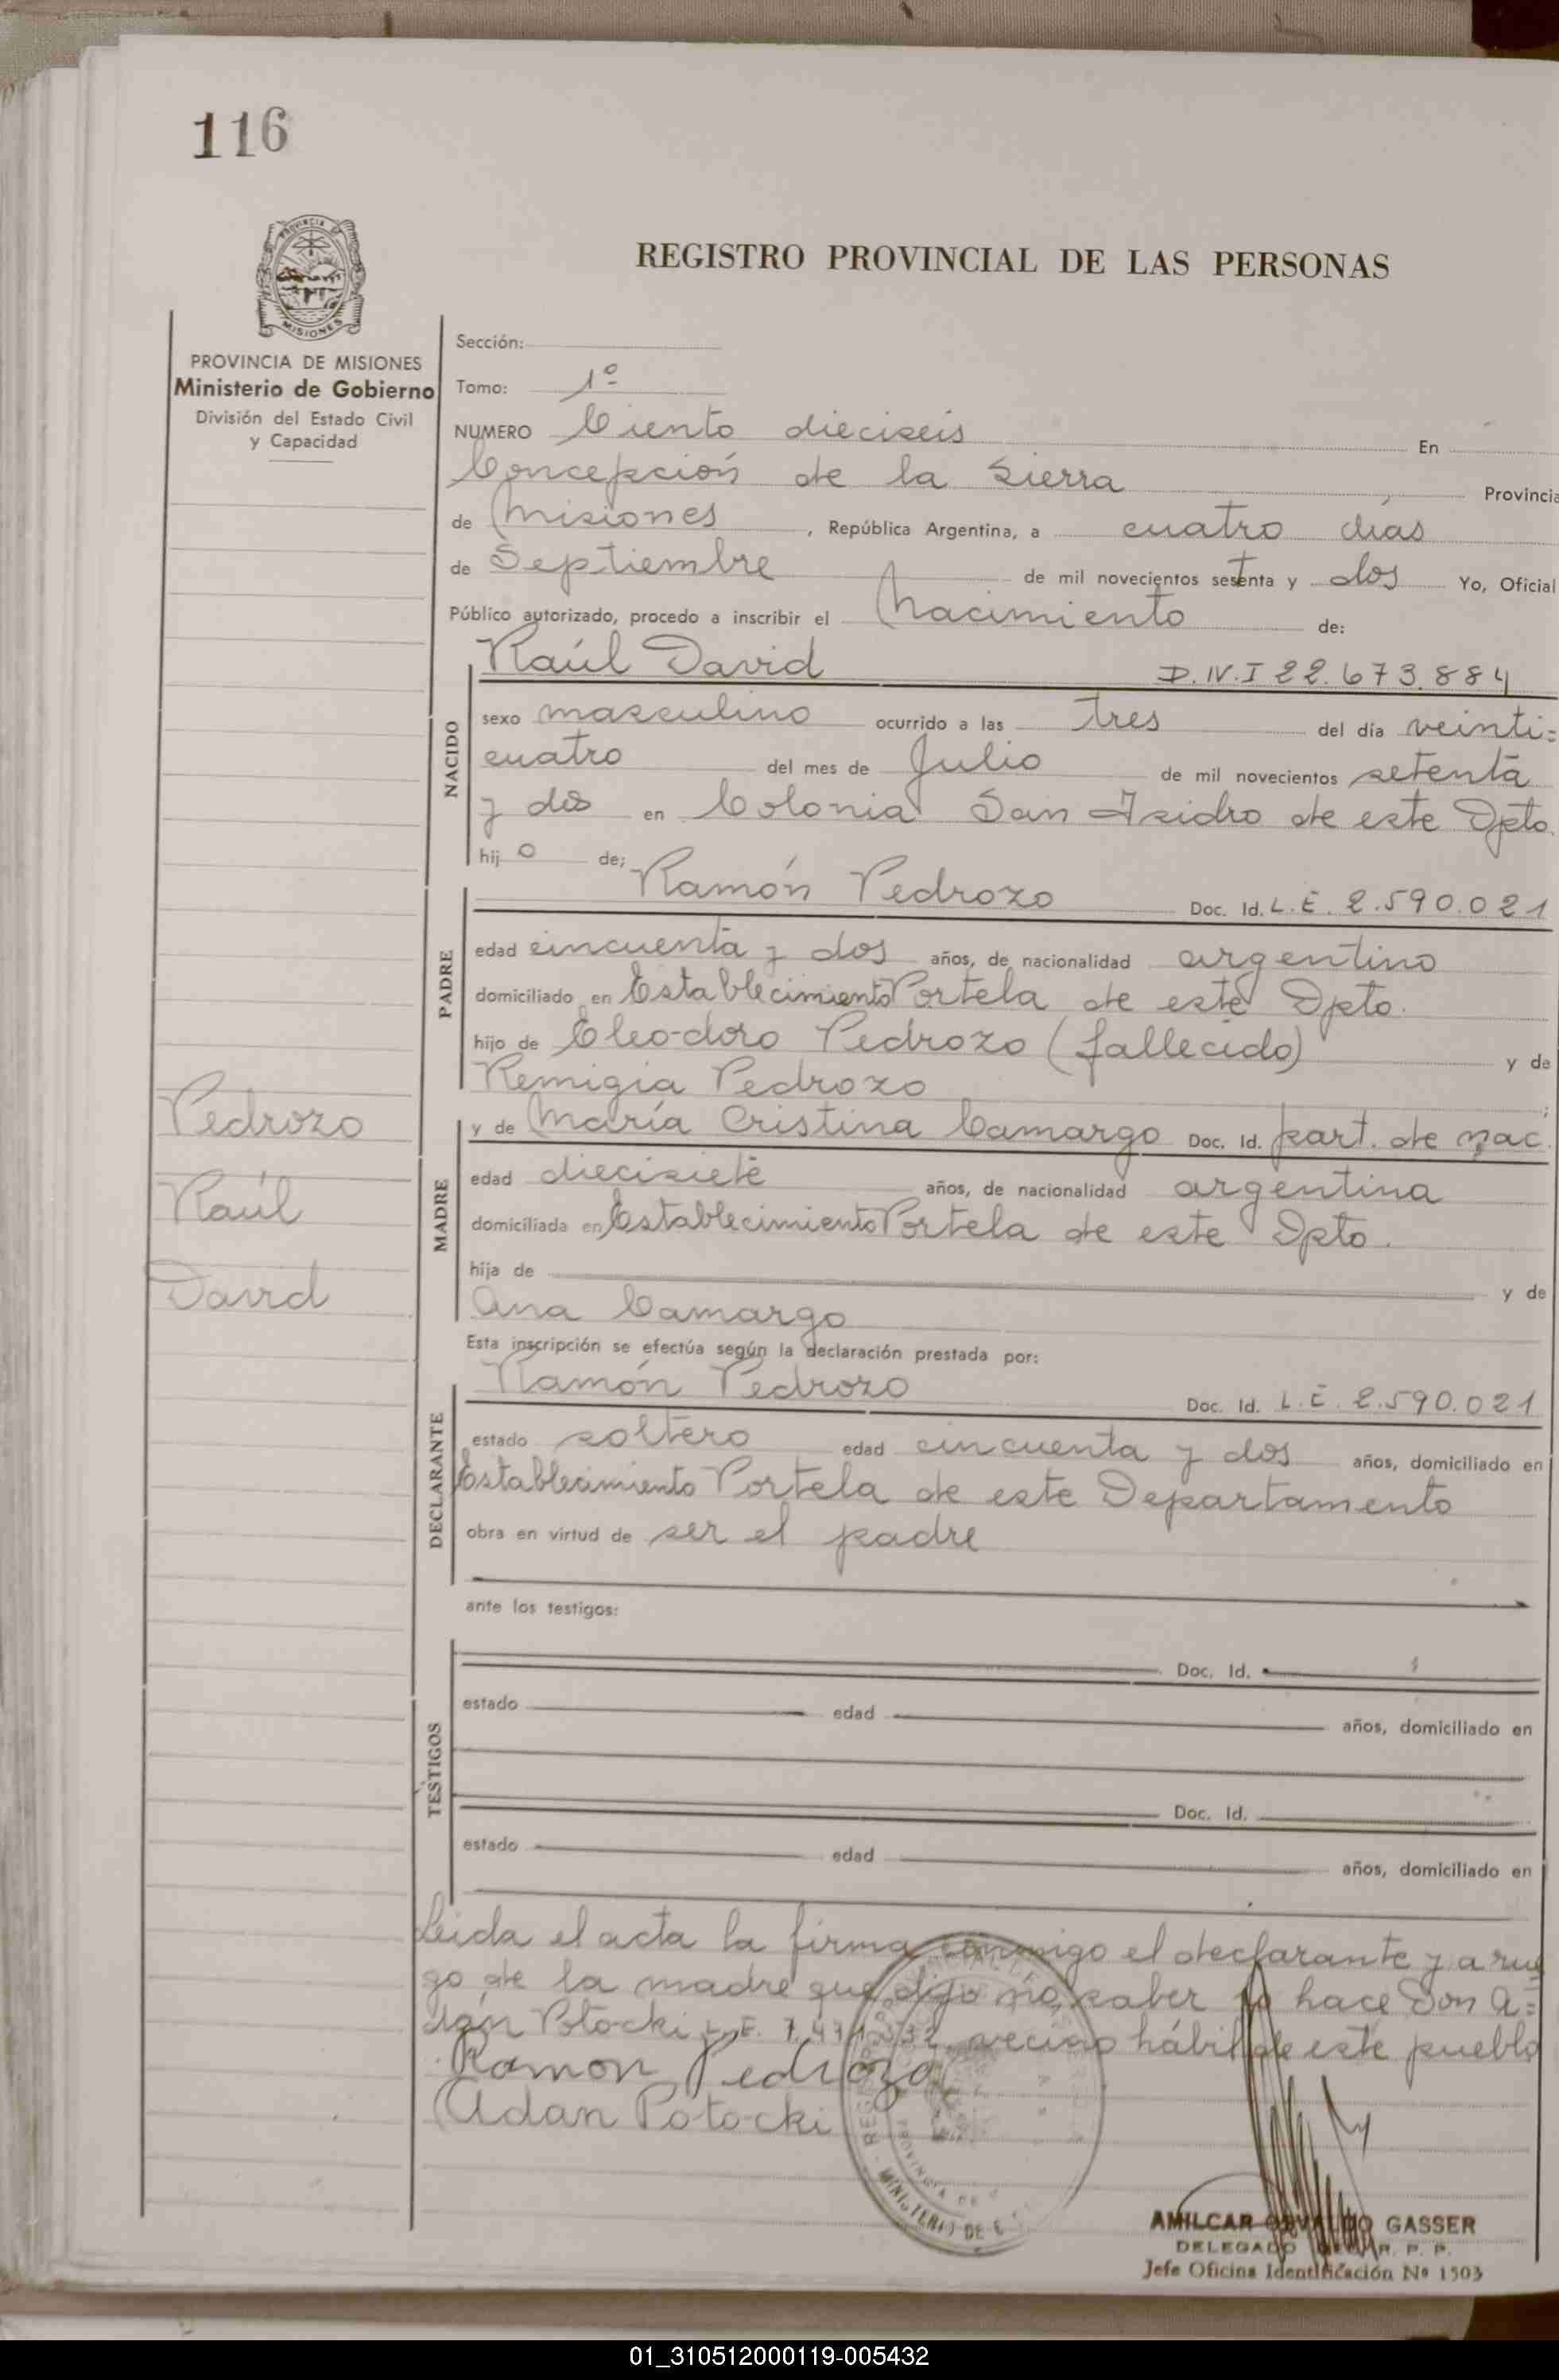 116
PROVINCIA
MISIONES
PROVINCIA DE MISIONES
Ministerio de Gobierno
División del Estado Civil
y Capacidad
REGISTRO PROVINCIAL DE LAS PERSONAS
Sección:
Tomo: 1º
NUMERO Ciento dieciseis En
Concepción de la Sierra Provincia
de Misiones, República Argentina, a cuatro días
de Septiembre de mil novecientos setenta y dos Yo, Oficial
Público autorizado, procedo a inscribir el Nacimiento de:
Raúl David D.N.I 22.673.884
NACIDO
sexo masculino ocurrido a las tres del día veinti=
cuatro del mes de Julio de mil novecientos setenta
y dos en Colonia San Isidro de este Dpto.
hijo de; Ramón Pedrozo Doc. Id. L.E. 2.590.021
PADRE
edad cincuenta y dos años, de nacionalidad argentino
domiciliado en Establecimiento Portela de este Dpto.
hijo de Eleodoro Pedrozo (fallecido) y de
Remigia Pedrozo ;
MADRE
y de María Cristina Camargo Doc. Id. part. de nac.
edad diecisiete años, de nacionalidad argentina
domiciliada en Establecimiento Portela de este Dpto.
hija de y de
Ana Camargo
Pedrozo
Raúl
David
Esta inscripción se efectúa según la declaración prestada por:
Ramón Pedrozo Doc. Id. L.E. 2.590.021
DECLARANTE
estado soltero edad cincuenta y dos años, domiciliado en
Establecimiento Portela de este Departamento
obra en virtud de ser el padre
ante los testigos:
TESTIGOS
Doc. Id.
estado edad años, domiciliado en
Doc. Id.
estado edad años, domiciliado en
Leida el acta la firma conmigo el declarante y a rue
go de la madre que dijo no saber lo hace Don A=
dán Potocki L.E. vecino hábil de este pueblo
Ramon Pedrozo
Adan Potocki
MINISTERIO DE
AMILCAR OSVALDO GASSER
DELEGADO R. P. P.
Jefe Oficina Identificación Nº 1503
01_310512000119-005432